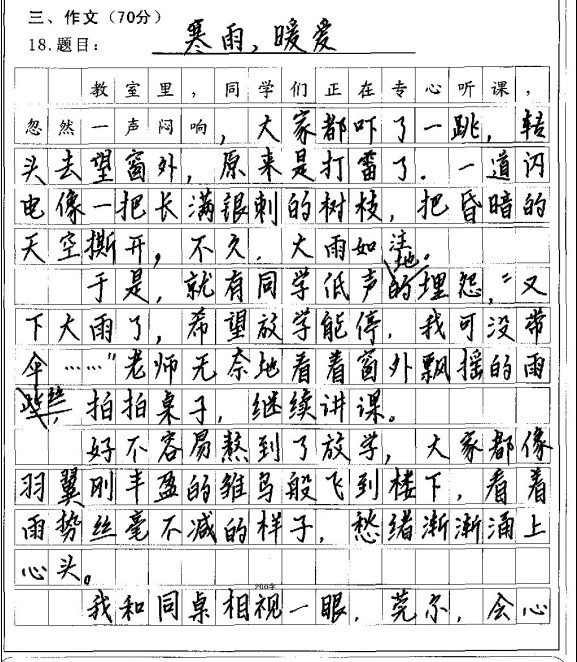 三、作文（70分）
18.题目：寒雨，暖爱
教室里，同学们正在专心听课，
忽然一声闷响，大家都吓了一跳，转
头去望窗外，原来是打雷了．一道闪
电像一把长满银刺的树枝，把昏暗的
天空撕开，不久．大雨如注。
于是，就有同学低声地埋怨，“又
下大雨了，希望放学能停．我可没带
伞……”老师无奈地看着窗外飘摇的雨
丝，拍拍桌子，继续讲课。
好不容易熬到了放学，大家都像
羽翼刚丰盈的雏鸟般飞到楼下，看着
雨势丝毫不减的样子，愁绪渐渐涌上
心头。
200字
我和同桌相视一眼．莞尔，会心